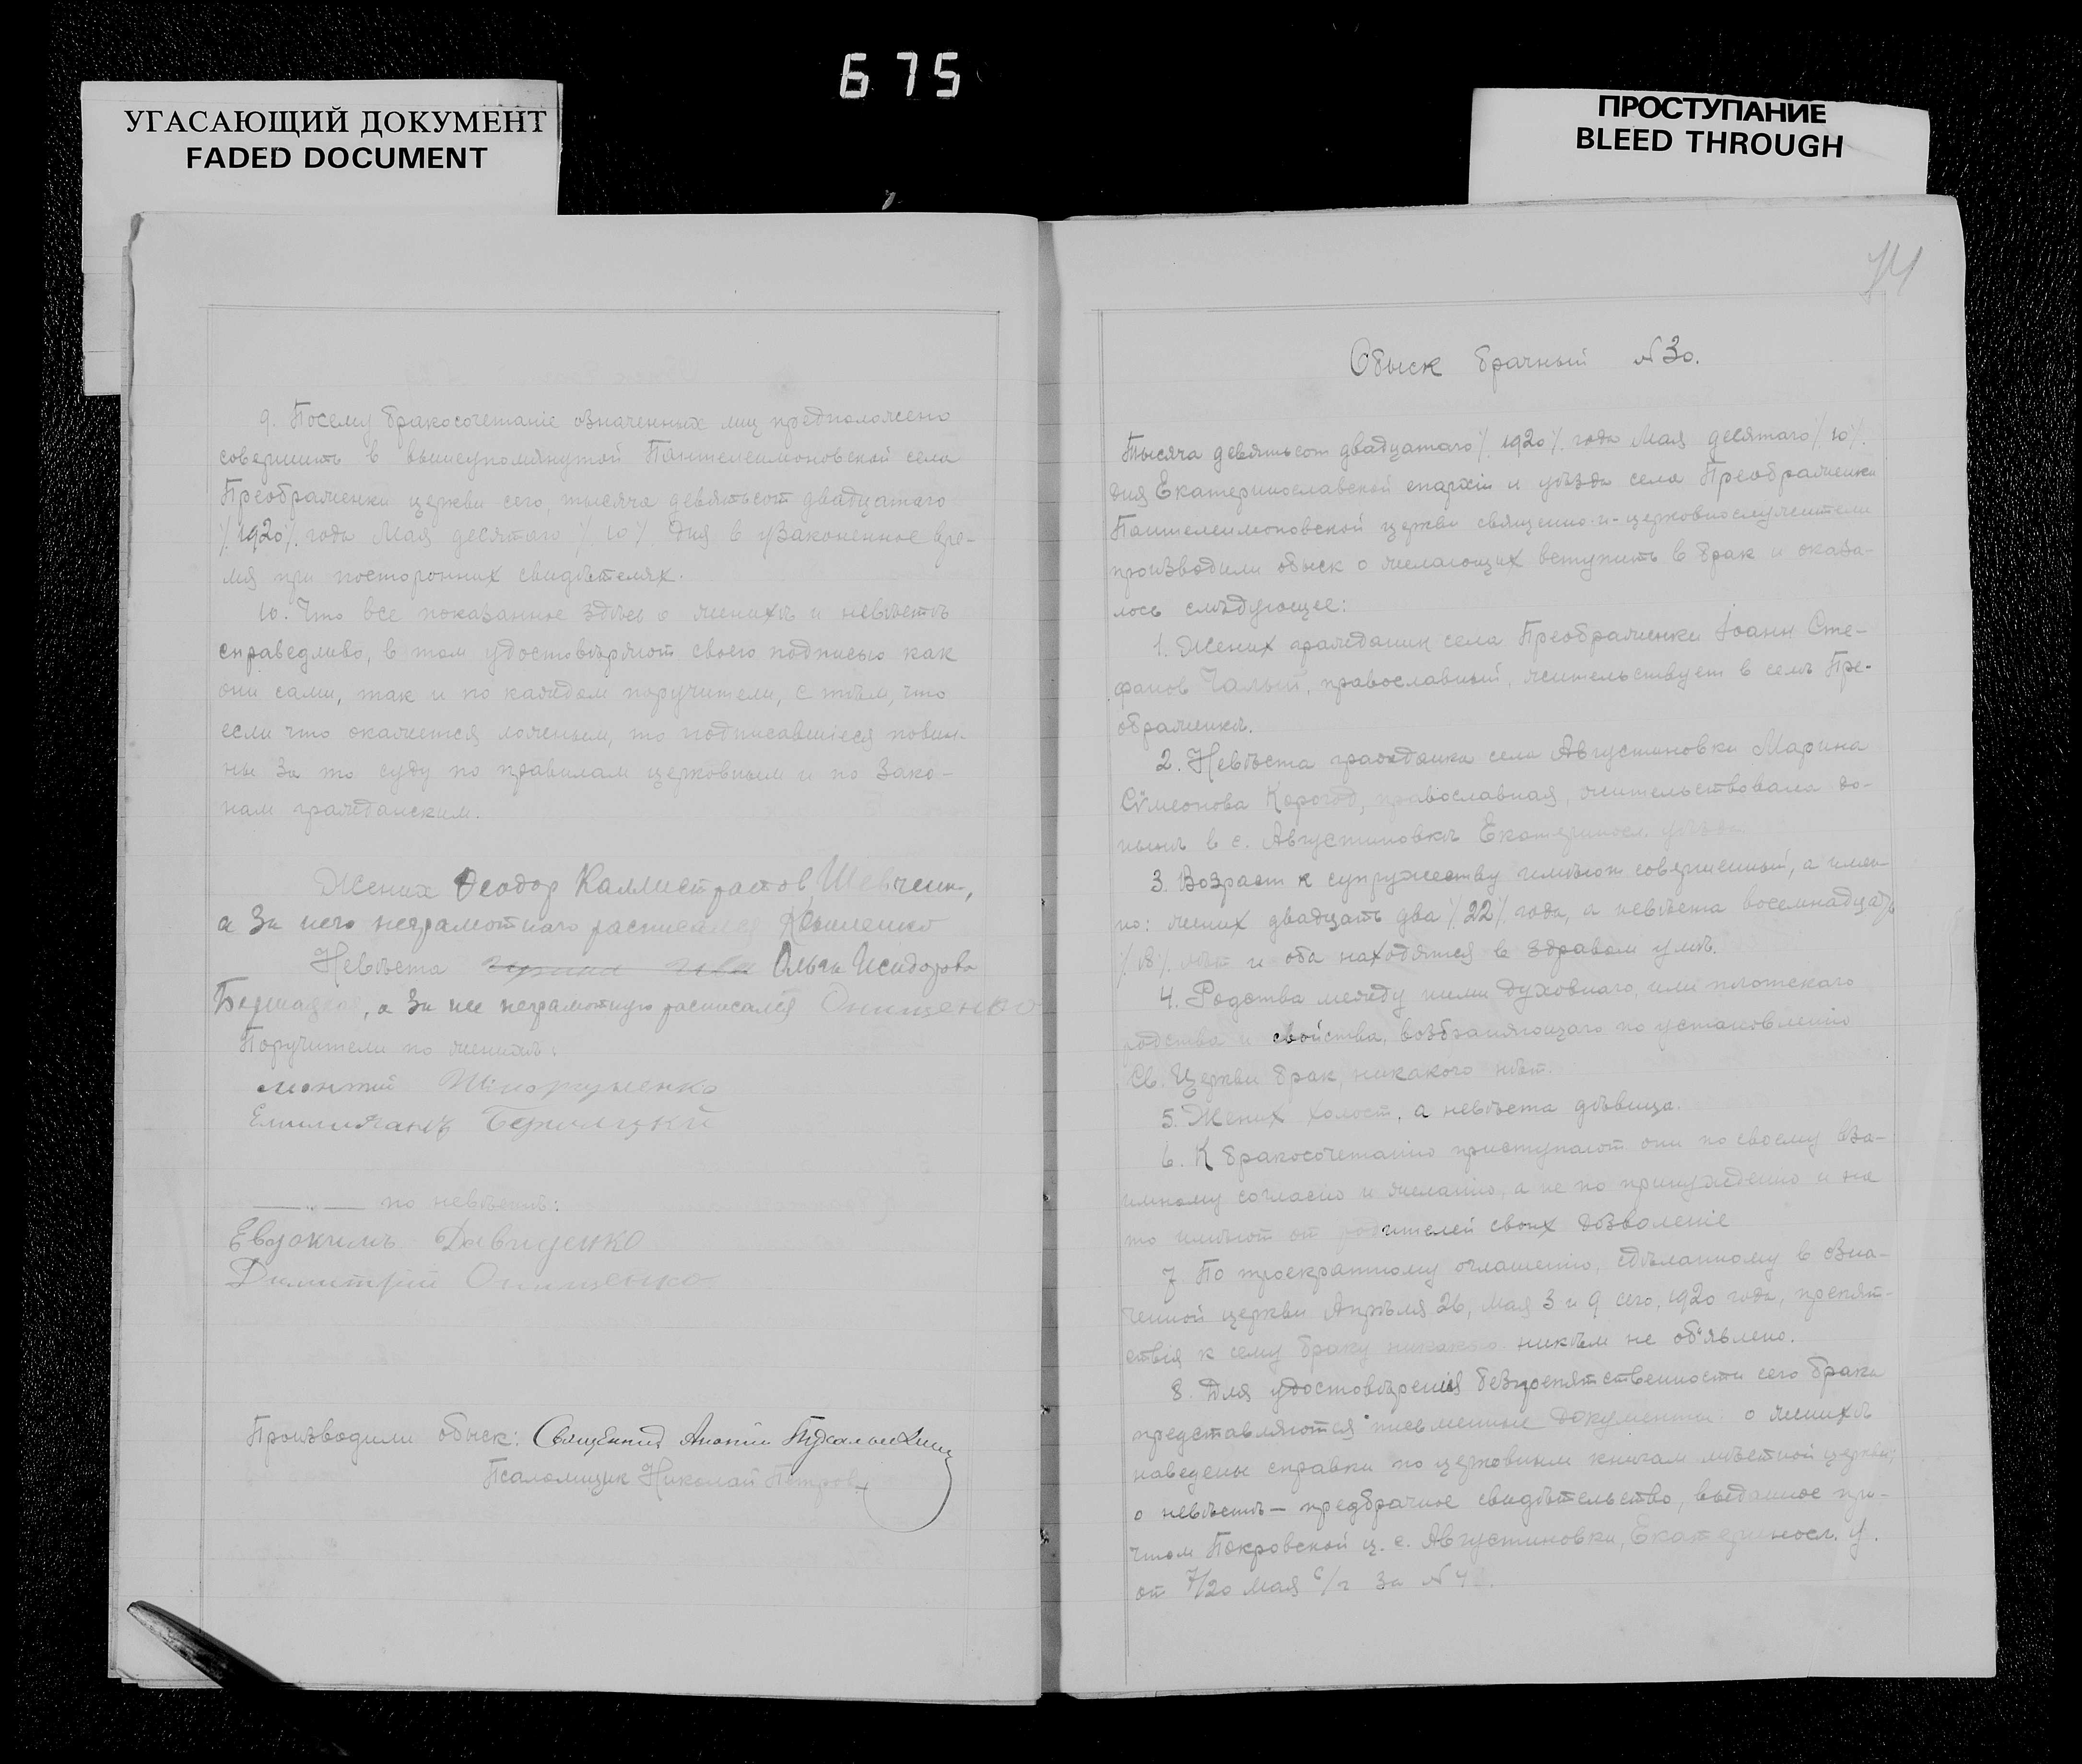 675
УГАСАЮЩИЙ ДОКУМЕНТ
FADED DOCUMENT
ПРОСТУПАНИЕ
BLEED THROUGH
9. Посему бракосочетаніе означенных лиц предположено
совершить в вышеупомянутой Пантелеимоновской села
Преображенки церкви сего, тысяча девятьсот двадцатаго
/1920/ года Мая десятаго /10/ дня в узаконенное вре-
мя при посторонних свидѣтелях.
10. Что все показанное здѣсь о женихѣ и невѣстѣ
справедливо, в том удостовѣряют своею подписью как
они сами, так и по каждом поручители, с тѣм, что
если что окажется ложным, то подписавшіеся повин-
ны за то суду по правилам церковным и по зако-
нам гражданским.
Жених Ѳеодор Каллистратов Шевченк,
а за него неграмотнаго расписался
Невѣста Ольга Исидорова
а за нее неграмотную расписался Онищенко
Поручители по женихѣ:
по невѣстѣ:
Евдокимъ Давиденко
Димитрій Онищенко
Производили обыск: Священник
Псаломщик Николай Петров
Обыск брачный №30.
Тысяча девятьсот двадцатаго /1920/ года Мая десятаго /10/
дня Екатеринославской епархіи и уѣзда села Преображенки
Пантелеимоновской церкви священно-и-церковнослужители
производили обыск о желающих вступить в брак и оказа-
лось слѣдующее:
1. Жених гражданин села Преображенки Іоанн Сте-
фанов Чалый, православный, жительствует в селѣ Пре-
ображенкѣ.
2. Невѣста гражданка села Августиновки Марина
Сѵмеонова Корогод, православная, жительствовала до-
нынѣ в с. Августиновкѣ Екатеринос. уѣзда
3. Возраст к супружеству имѣют совершенный, а имен-
но: жених двадцать два /22/ года, а невѣста восемнадцать
/18/ лѣт и оба находятся в здравом умѣ.
4. Родства между ними духовнаго, или плотскаго
родства и свойства, возбраняющаго по установленію
Св. Церкви брак, никакого нѣт.
5. Жених холост, а невѣста дѣвица.
6. К бракосочетанію приступают они по своему вза-
имному согласію и желанію, а не по принужденію и на
то имѣют от родителей своих дозволеніе
7. По троекратному оглашенію, сдѣланному в озна-
ченной церкви Апрѣля 26, Мая 3 и 9 сего, 1920 года, препят-
ствія к сему браку никакого никѣм не об'явлено.
8. Для удостовѣренія безпрепятственности сего брака
представляются письменные документы: о женихѣ
наведены справки по церковным книгам мѣстной церкви,
о невѣстѣ — предбрачное свидѣтельство, выданное при-
чтом Покровской ц. с. Августиновки, Екатеринос. у.
от 7/20 Мая с/г за №4